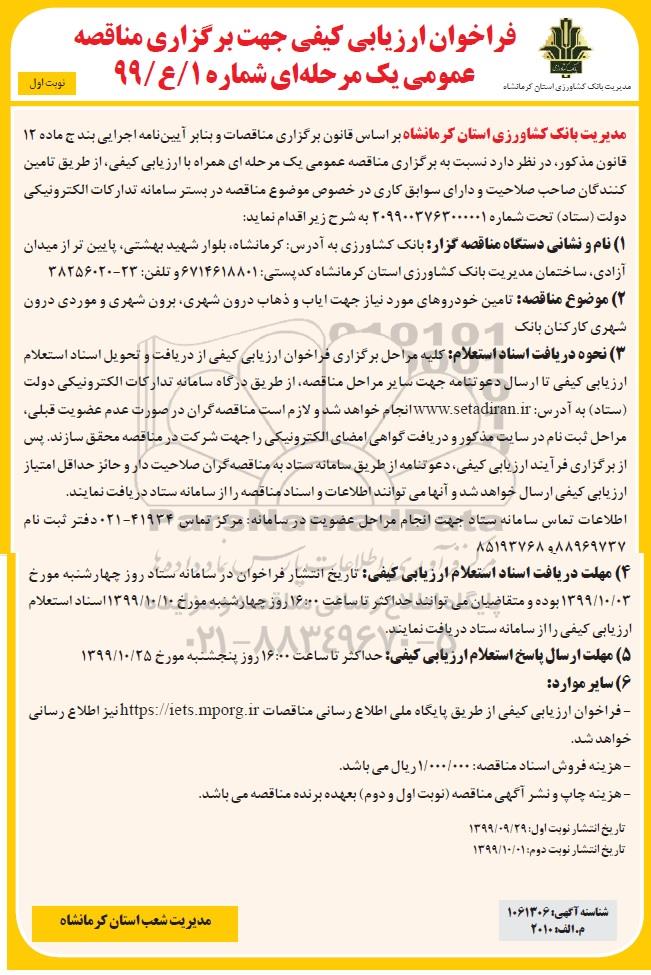 فراخوان ارزیابی کیفی جهت برگزاری مناقصه
عمومی یک مرحله‌ای شماره ۱/ع/۹۹
بانک کشاورزی
مدیریت بانک کشاورزی استان کرمانشاه
نوبت اول
مدیریت بانک کشاورزی استان کرمانشاه بر اساس قانون برگزاری مناقصات و بنابر آیین‌نامه اجرایی بند ج ماده ۱۲
قانون مذکور، در نظر دارد نسبت به برگزاری مناقصه عمومی یک مرحله ای همراه با ارزیابی کیفی، از طریق تامین
کنندگان صاحب صلاحیت و دارای سوابق کاری در خصوص موضوع مناقصه در بستر سامانه تدارکات الکترونیکی
دولت (ستاد) تحت شماره ۲۰۹۹۰۰۳۷۶۳۰۰۰۰۰۱ به شرح زیر اقدام نماید:
۱) نام و نشانی دستگاه مناقصه گزار: بانک کشاورزی به آدرس: کرمانشاه، بلوار شهید بهشتی، پایین تر از میدان
آزادی، ساختمان مدیریت بانک کشاورزی استان کرمانشاه کدپستی: ۶۷۱۴۶۱۸۸۰۱ و تلفن: ۲۳-۳۸۲۵۶۰۲۰
۲) موضوع مناقصه: تامین خودروهای مورد نیاز جهت ایاب و ذهاب درون شهری، برون شهری و موردی درون
شهری کارکنان بانک
۳) نحوه دریافت اسناد استعلام: کلیه مراحل برگزاری فراخوان ارزیابی کیفی از دریافت و تحویل اسناد استعلام
ارزیابی کیفی تا ارسال دعوتنامه جهت سایر مراحل مناقصه، از طریق درگاه سامانه تدارکات الکترونیکی دولت
(ستاد) به آدرس: www.setadiran.ir انجام خواهد شد و لازم است مناقصه‌گران در صورت عدم عضویت قبلی،
مراحل ثبت نام در سایت مذکور و دریافت گواهی امضای الکترونیکی را جهت شرکت در مناقصه محقق سازند. پس
از برگزاری فرآیند ارزیابی کیفی، دعوتنامه از طریق سامانه ستاد به مناقصه‌گران صلاحیت دار و حائز حداقل امتیاز
ارزیابی کیفی ارسال خواهد شد و آنها می توانند اطلاعات و اسناد مناقصه را از سامانه ستاد دریافت نمایند.
اطلاعات تماس سامانه ستاد جهت انجام مراحل عضویت در سامانه: مرکز تماس ۴۱۹۳۴-۰۲۱ دفتر ثبت نام
۸۸۹۶۹۷۳۷ و ۸۵۱۹۳۷۶۸
۴) مهلت دریافت اسناد استعلام ارزیابی کیفی: تاریخ انتشار فراخوان در سامانه ستاد روز چهارشنبه مورخ
۱۳۹۹/۱۰/۰۳ بوده و متقاضیان می توانند حداکثر تا ساعت ۱۶:۰۰ روز چهارشنبه مورخ ۱۳۹۹/۱۰/۱۰ اسناد استعلام
ارزیابی کیفی را از سامانه ستاد دریافت نمایند.
۵) مهلت ارسال پاسخ استعلام ارزیابی کیفی: حداکثر تا ساعت ۱۶:۰۰ روز پنجشنبه مورخ ۱۳۹۹/۱۰/۲۵
۶) سایر موارد:
- فراخوان ارزیابی کیفی از طریق پایگاه ملی اطلاع رسانی مناقصات https://iets.mporg.ir نیز اطلاع رسانی
خواهد شد.
- هزینه فروش اسناد مناقصه: ۱/۰۰۰/۰۰۰ ریال می باشد.
- هزینه چاپ و نشر آگهی مناقصه (نوبت اول و دوم) بعهده برنده مناقصه می باشد.
تاریخ انتشار نوبت اول: ۱۳۹۹/۰۹/۲۹
تاریخ انتشار نوبت دوم: ۱۳۹۹/۱۰/۰۱
شناسه آگهی: ۱۰۶۱۳۰۶
م.الف: ۲۰۱۰
مدیریت شعب استان کرمانشاه
ParsNamadData
۰۲۱-۸۸۳۴۹۶۷۰-۵